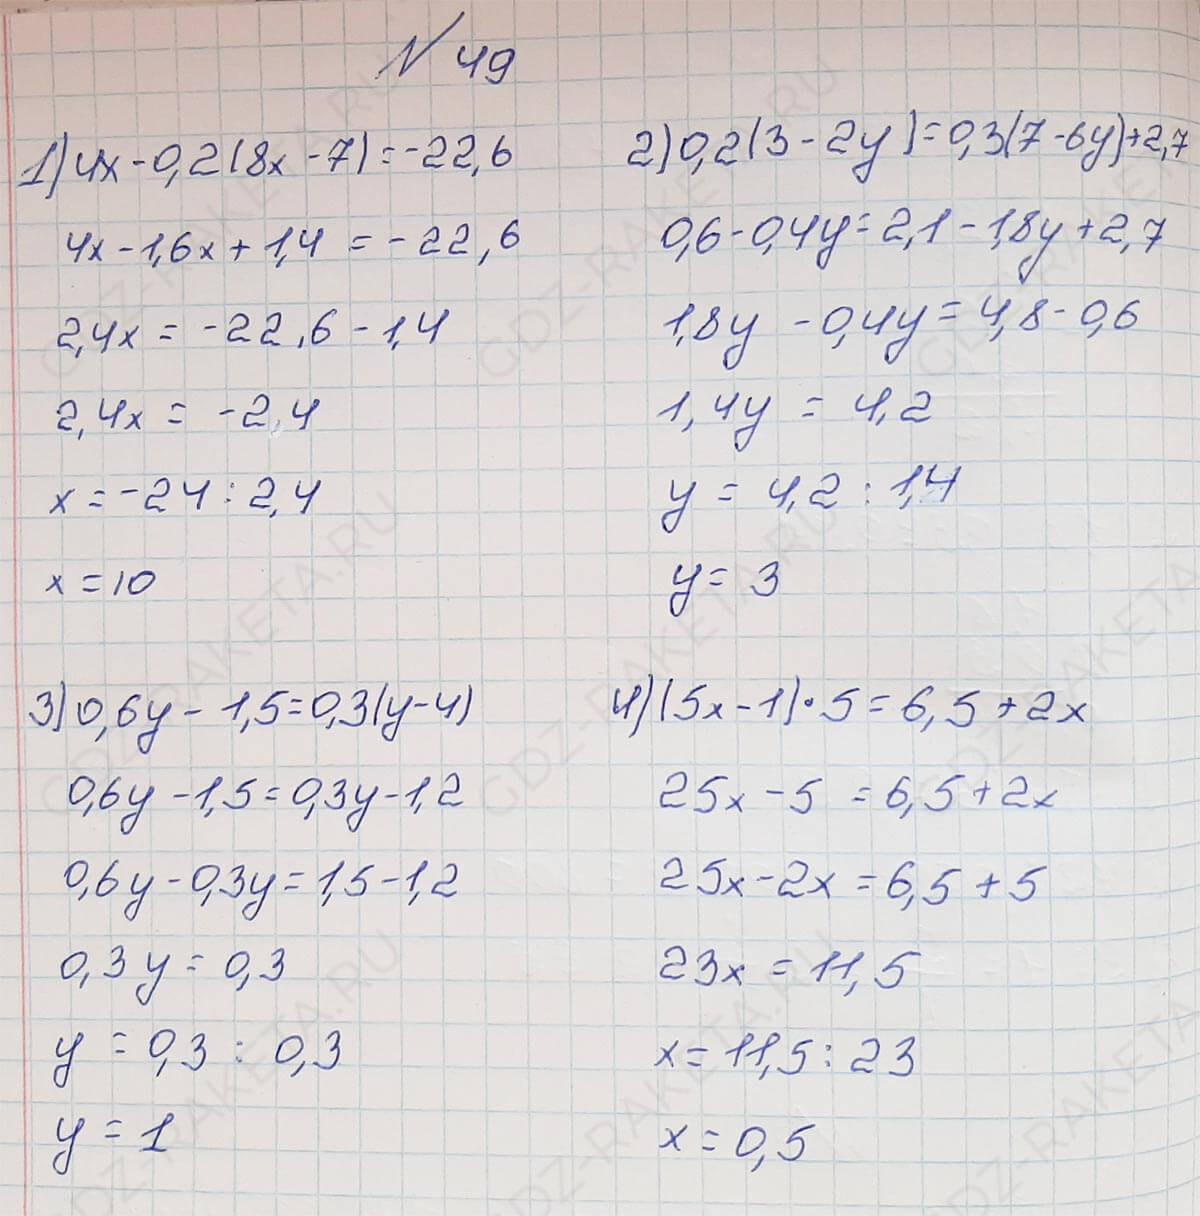 № 49
1) 4x - 0,2(8x - 7) = -22,6
4x - 1,6x + 1,4 = -22,6
2,4x = -22,6 - 1,4
2,4x = -2,4
x = -24 : 2,4
x = 10
2) 0,2(3 - 2y) = 0,3(7 - 6y) + 2,7
0,6 - 0,4y = 2,1 - 1,8y + 2,7
1,8y - 0,4y = 4,8 - 0,6
1,4y = 4,2
y = 4,2 : 1,4
y = 3
3) 0,6y - 1,5 = 0,3(y - 4)
0,6y - 1,5 = 0,3y - 1,2
0,6y - 0,3y = 1,5 - 1,2
0,3y = 0,3
y = 0,3 : 0,3
y = 1
4) (5x - 1) · 5 = 6,5 + 2x
25x - 5 = 6,5 + 2x
25x - 2x = 6,5 + 5
23x = 11,5
x = 11,5 : 23
x = 0,5
GDZ-RAKETA.RU